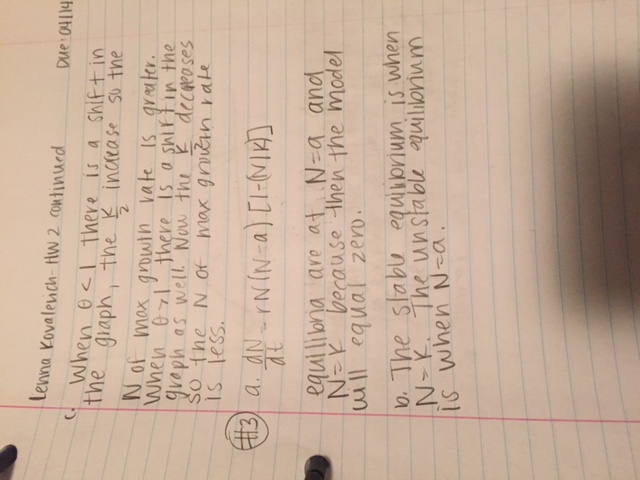 Lenna Kovalerich - HW 2 continued Due: 04/14
c. When θ<1 there is a shift in
the graph, the K/2 increase so the
N of max growth rate is greater.
When θ>1 there is a shift in the
graph as well. Now the K/2 decreases
so the N of max growth rate
is less.
#3 a. dN/dt = rN(N-a)[1-(N/K)]
equilibria are at N=a and
N=K because then the model
will equal zero.
b. The stable equilibrium is when
N=K. The unstable equilibrium
is when N=a.